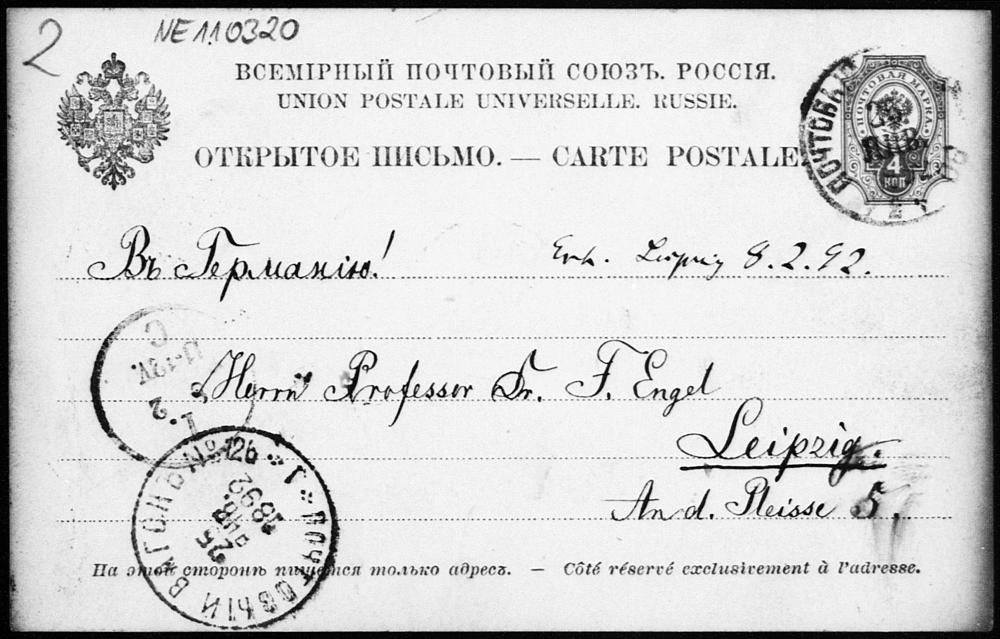 2
NE110320
ВСЕМІРНЫЙ ПОЧТОВЫЙ СОЮЗЪ. РОССІЯ.
UNION POSTALE UNIVERSELLE. RUSSIE.
ОТКРЫТОЕ ПИСЬМО. — CARTE POSTALE.
ПОЧТОВАЯ МАРКА
4 КОП
ПОЧТОВЫЙ
Въ Германію!
Erh. Leipzig 8. 2. 92.
Herrn Professor Dr. F. Engel
Leipzig.
An d. Pleisse 5.
ПОЧТОВЫЙ ВАГОНЪ № 126
25 ЯНВ. 1892
На этой сторонѣ пишется только адресъ. — Côté réservé exclusivement à l'adresse.